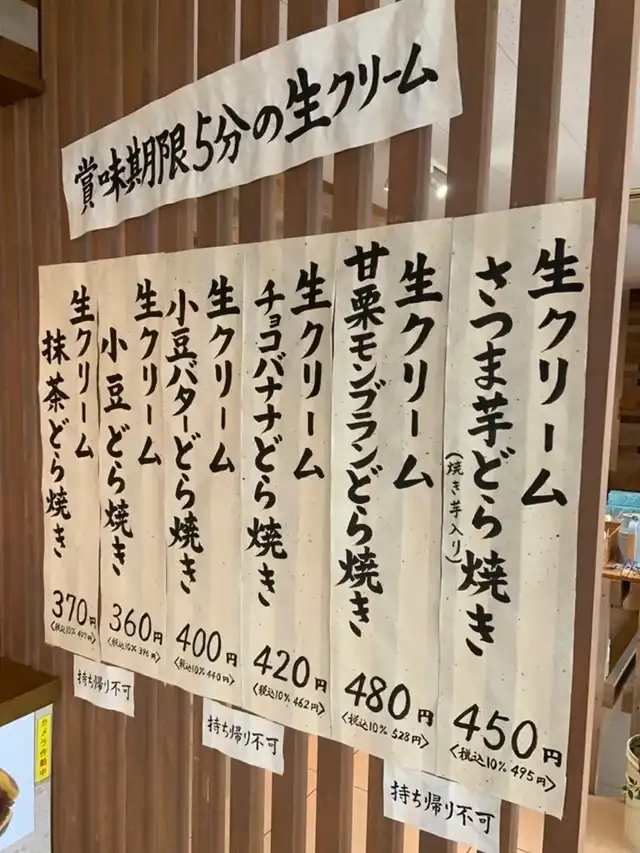 賞味期限5分の生クリーム
生クリーム
さつま芋どら焼き
(焼き芋入り)
450円
<税込10% 495円>
生クリーム
甘栗モンブランどら焼き
480円
<税込10% 528円>
生クリーム
チョコバナナどら焼き
420円
<税込10% 462円>
生クリーム
小豆バターどら焼き
400円
<税込10% 440円>
生クリーム
小豆どら焼き
360円
<税込10% 396円>
生クリーム
抹茶どら焼き
370円
<税込10% 407円>
持ち帰り不可
持ち帰り不可
持ち帰り不可
カメラ作動中